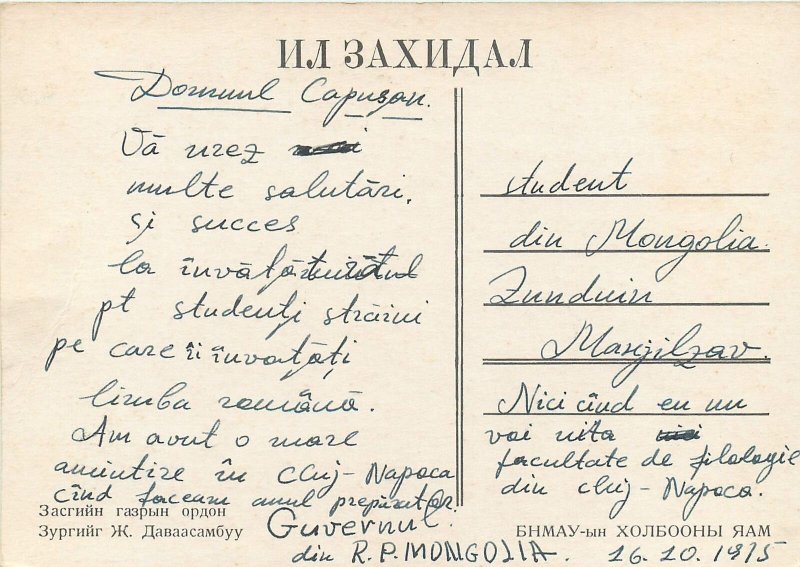 ИЛ ЗАХИДАЛ
Domnul Capușan.
Vă urez
multe salutări,
și succes
la învăță
pt studenți străini
pe care îi învățați
limba română.
Am avut o mare
amintire în Cluj-Napoca
cînd faceam anul preparator.
Засгийн газрын ордон
Зургийг Ж. Даваасамбуу
Guvernul
din R.P. MONGOLIA. 16.10.1975
student
din Mongolia.
Zunduin
Manjilzav.
Nici cînd eu nu
voi uita
facultate de filologie
din Cluj-Napoca.
БНМАУ-ын ХОЛБООНЫ ЯАМ